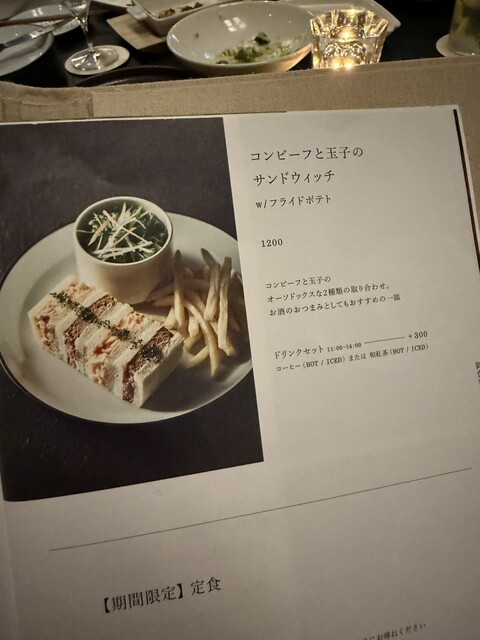 コンビーフと玉子の
サンドウィッチ
w/フライドポテト
1200
コンビーフと玉子の
オーソドックスな2種類の取り合わせ。
お酒のおつまみとしてもおすすめの一皿
ドリンクセット 11:00-14:00 ———— +300
コーヒー(HOT / ICED) または 和紅茶(HOT / ICED)
【期間限定】定食
にお尋ねください